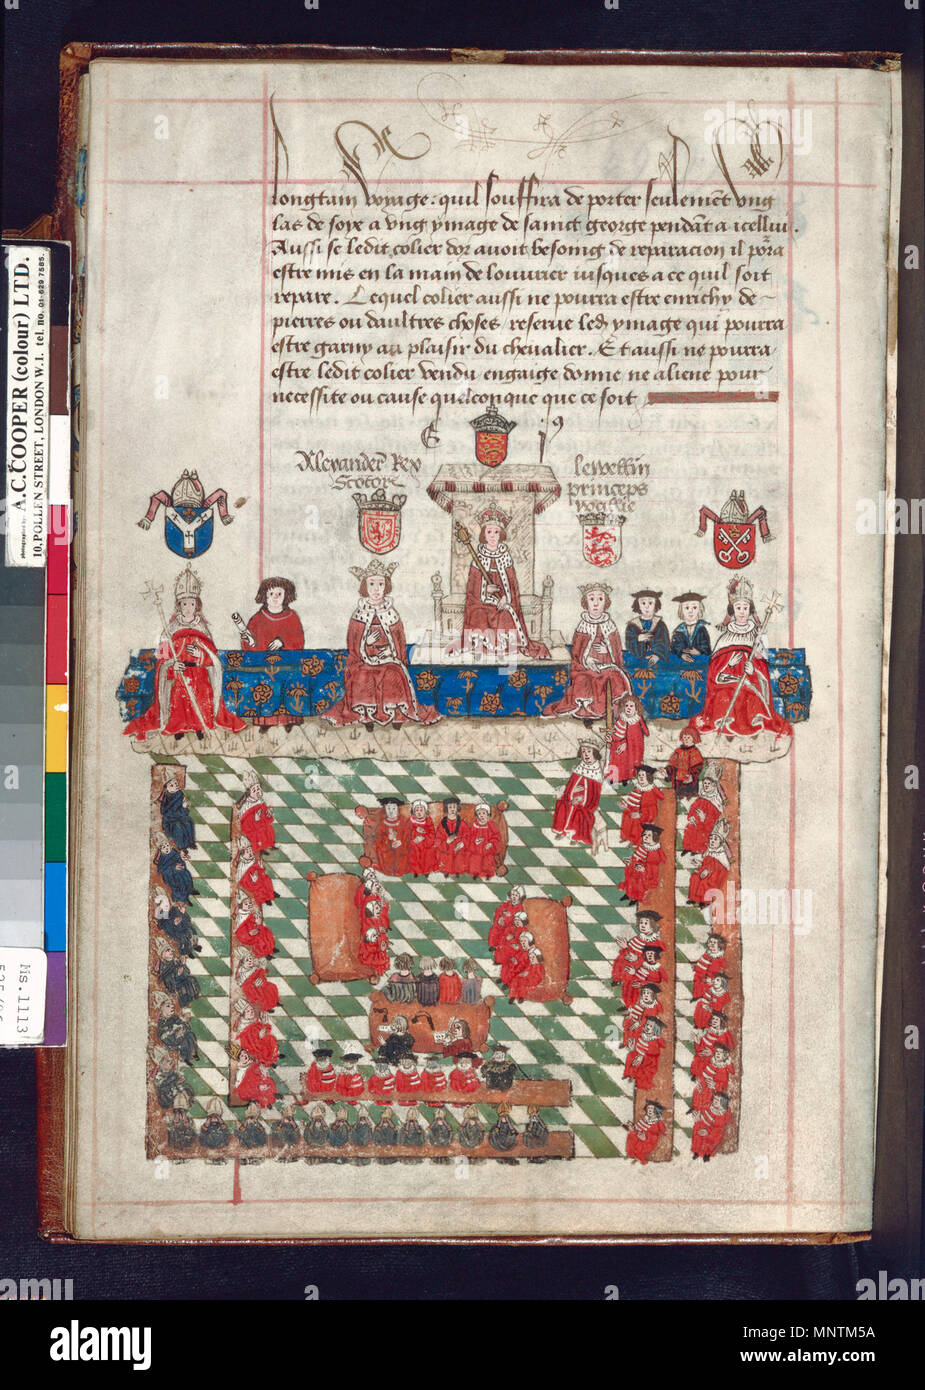 longtain voyage : quil souffira de porter seulemēt vng
las de soye a vng ymage de sainct george pendāt a icelluy.
Aussi se ledit colier dor auoit besoing de reparacion il pōra
estre mis en la main de louurier iusques a ce quil soit
repare. Lequel colier aussi ne pourra estre enrichy de
pierres ou daultres choses reserue led ymage qui pourra
estre garny au plaisir du cheualier. Et aussi ne pourra
estre ledit colier vendu engaige donne ne aliene pour
necessite ou cause quelconque que ce soit
E
Alexander Rex
Scotor
lewellin
princeps
photographed by A.C.COOPER (colour) LTD.
10, POLLEN STREET, LONDON W.1. tel. no. 01-629 7585.
Ms. 1113
alamy
Image ID: MNTM5A
www.alamy.com